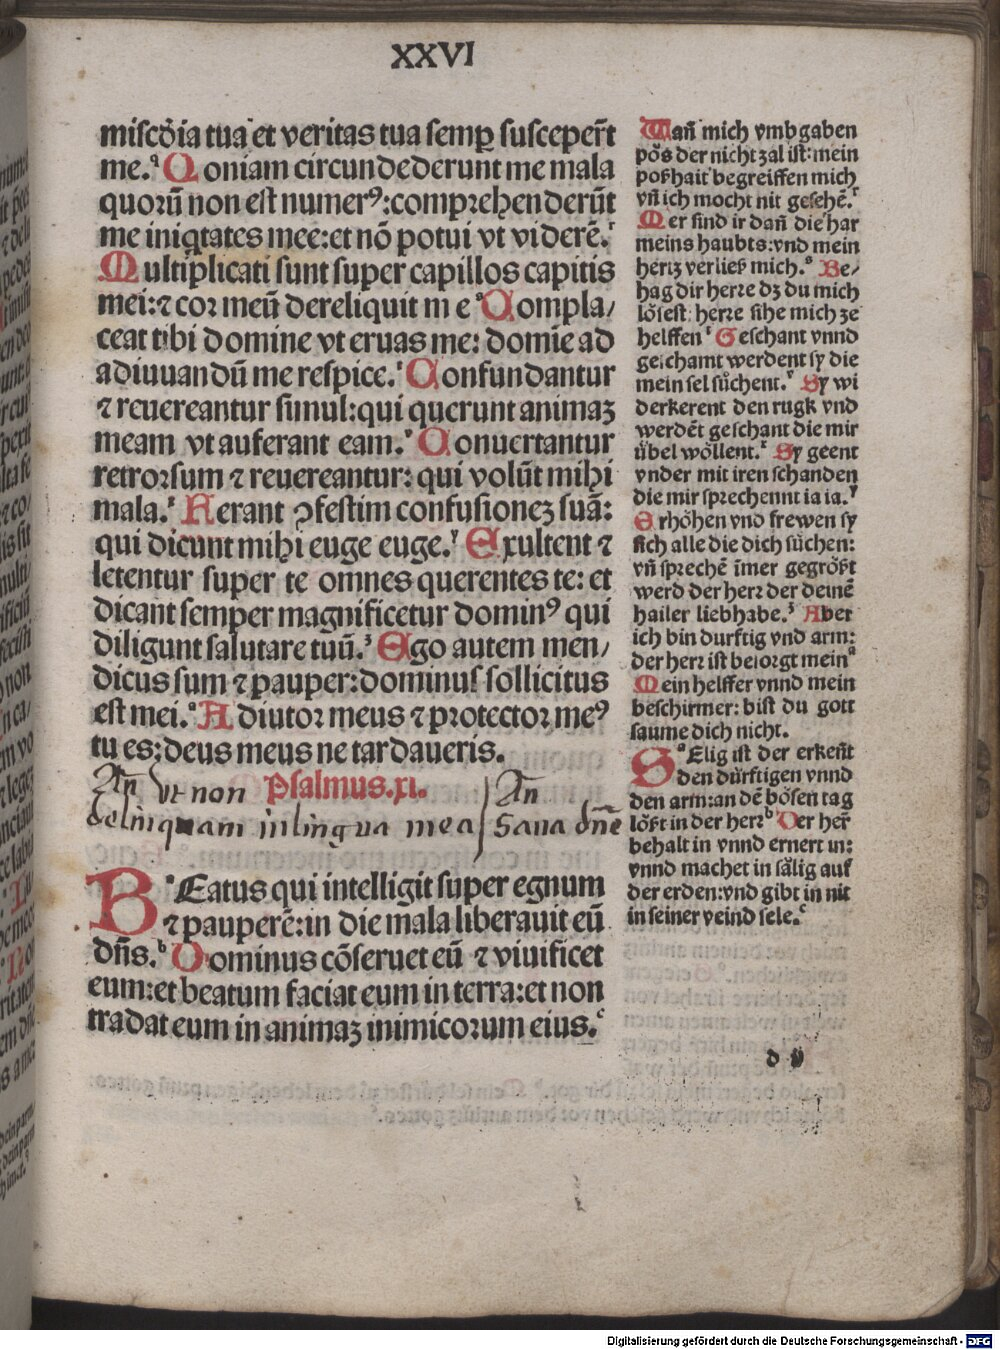 XXVI
miscd̄ia tua et veritas tua semꝑ susceper̄t
me.q Qoniam circundederunt me mala
quorū non est numerꝰ: comprehenderūt
me iniqtates mee: et nō potui vt viderē.r
Multiplicati sunt super capillos capitis
mei: ⁊ cor meū dereliquit me s Compla/
ceat tibi domine vt eruas me: domīe ad
adiuuandū me respice.t Confundantur
⁊ reuereantur simul: qui querunt animaꝫ
meam vt auferant eam.v Conuertantur
retrorsum ⁊ reuereantur: qui volūt mihi
mala.x Ferant ꝯfestim confusioneꝫ suā:
qui dicunt mihi euge euge.y Exultent ⁊
letentur super te omnes querentes te: et
dicant semper magnificetur dominꝰ qui
diligunt salutare tuū.z Ego autem men/
dicus sum ⁊ pauper: dominus sollicitus
est mei.a Adiutor meus ⁊ protector meꝰ
tu es: deus meus ne tardaueris.
An̄ Vt non Psalmus.xl. An̄
delinquam in lingua mea Sana dn̄e
Beatus qui intelligit super egnum
⁊ pauperē: in die mala liberauit eū
dn̄s.b Dominus cōseruet eū ⁊ viuificet
eum: et beatum faciat eum in terra: et non
tradat eum in animaꝫ inimicorum eius.c
Wañ mich vmbgaben
pōs der nicht zal ist: mein
poßhait begreiffen mich
vñ ich mocht nit gesehē.r
Mer sind ir dañ die har
meins haubts: vnd mein
hertz verließ mich.s Be/
hag dir herre dz du mich
lösest: herre sihe mich ze
helffen t Geschant vnnd
geschamt werdent sy die
mein sel sůchent.v Sy wi
derkerent den rugk vnd
werdēt geschant die mir
übel wöllent.x Sy geent
vnder mit iren schanden
die mir sprechennt ia ia.y
Erhöhen vnd frewen sy
sich alle die dich sůchen:
vñ sprechē īmer gegrößt
werd der herr der deinē
hailer liebhabe.z Aber
ich bin durftig vnd arm:
der herr ist besorgt mein a
Mein helffer vnnd mein
beschirmer: bist du gott
saume dich nicht.
Selig ist der erkeñt
den dürftigen vnnd
den arm: an dē bösen tag
lößt in der herr b Der her̄
behalt in vnnd ernert in:
vnnd machet in sälig auf
der erden: vnd gibt in nit
in seiner veind sele.c
d v
Digitalisierung gefördert durch die Deutsche Forschungsgemeinschaft - DFG